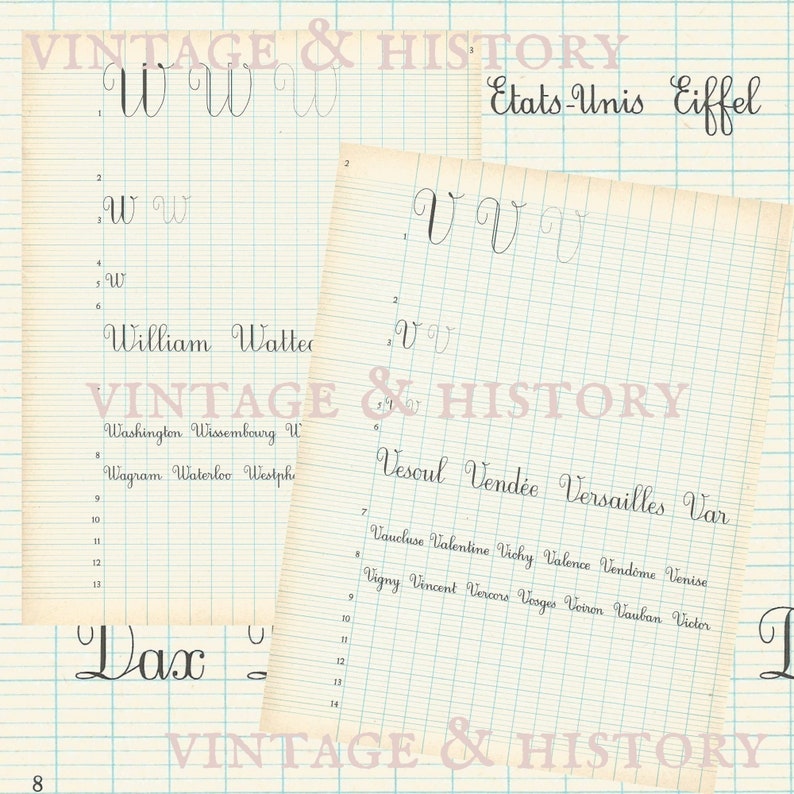 VINTAGE & HISTORY
3
Etats-Unis Eiffel
1 W W W
2
3 W W
4
5 W
6
William
7
Washington Wissembourg
8
Wagram Waterloo
9
10
11
12
13
2
1 V V V
2
3 V V
VINTAGE & HISTORY
5 V V
6
Vesoul Vendée Versailles Var
7
Vaucluse Valentine Vichy Valence Vendôme Venise
8
Vigny Vincent Vercors Vosges Voiron Vauban Victor
9
10
11
12
13
14
Dax
VINTAGE & HISTORY
8